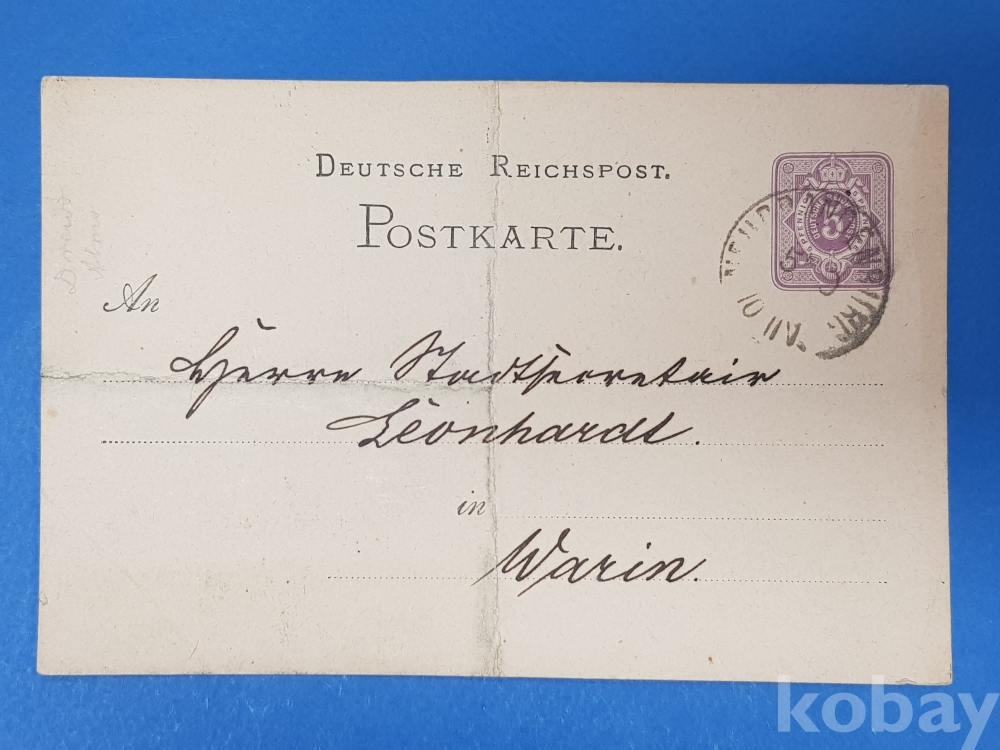 DEUTSCHE REICHSPOST.
POSTKARTE.
5
An
Herrn Stadtsecretair
Leonhardt.
in
Warin.
kobay